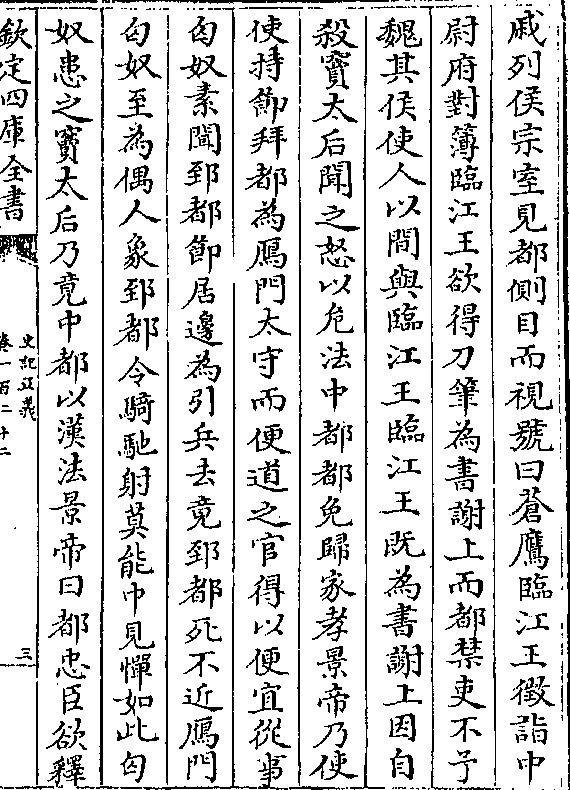 戚列侯宗室見都側目而視號曰蒼鷹臨江王徵詣中
尉府對簿臨江王欲得刀筆為書謝上而都禁吏不予
魏其侯使人以間與臨江王臨江王既為書謝上因自
殺竇太后聞之怒以危法中都都免歸家孝景帝乃使
使持節拜都為鴈門太守而便道之官得以便宜從事
匈奴素聞郅都節居邊為引兵去竟郅都死不近鴈門
匈奴至為偶人象郅都令騎馳射莫能中見憚如此匈
奴患之竇太后乃竟中都以漢法景帝曰都忠臣欲釋
欽定四庫全書
史記正義
卷一百二十二
三